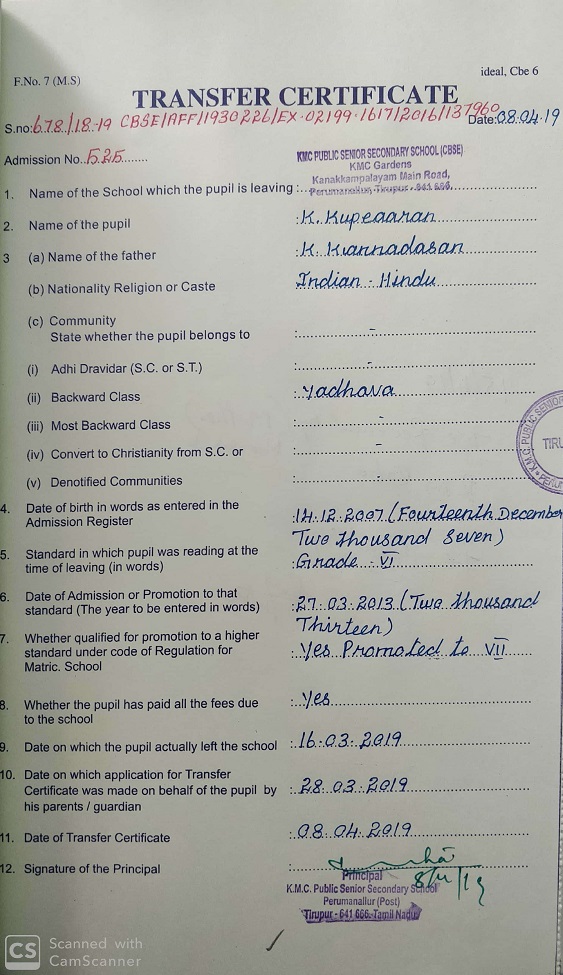 F.No. 7 (M.S)
ideal, Cbe 6
TRANSFER CERTIFICATE
S.no: 678/18-19 CBSE/AFF/1930226/EX-02199-1617/2016/137960 Date: 08.04.19
Admission No. 525
KMC PUBLIC SENIOR SECONDARY SCHOOL (CBSE)
KMC Gardens
Kanakkampalayam Main Road,
1. Name of the School which the pupil is leaving : Perumanallur, Tirupur - 641 666.
2. Name of the pupil : K. Kupeaaran
3 (a) Name of the father : K. Kannadasan
(b) Nationality Religion or Caste Indian - Hindu
(c) Community
State whether the pupil belongs to : -
(i) Adhi Dravidar (S.C. or S.T.) : -
(ii) Backward Class : Yadhava
(iii) Most Backward Class : -
(iv) Convert to Christianity from S.C. or : -
(v) Denotified Communities : -
4. Date of birth in words as entered in the
Admission Register : 14.12.2007 (Fourteenth December
Two thousand Seven)
5. Standard in which pupil was reading at the
time of leaving (in words) : Grade - VI
6. Date of Admission or Promotion to that
standard (The year to be entered in words) : 27.03.2013 (Two thousand
Thirteen)
7. Whether qualified for promotion to a higher
standard under code of Regulation for : Yes Promoted to VII
Matric. School
8. Whether the pupil has paid all the fees due : Yes
to the school
9. Date on which the pupil actually left the school : 16.03.2019
10. Date on which application for Transfer
Certificate was made on behalf of the pupil by : 28.03.2019
his parents / guardian
11. Date of Transfer Certificate : 08.04.2019
12. Signature of the Principal :
Principal 8/4/19
K.M.C. Public Senior Secondary School
Perumanallur (Post)
Tirupur - 641 666. Tamil Nadu
K.M.C. PUBLIC SENIOR
TIRU
CS Scanned with
CamScanner